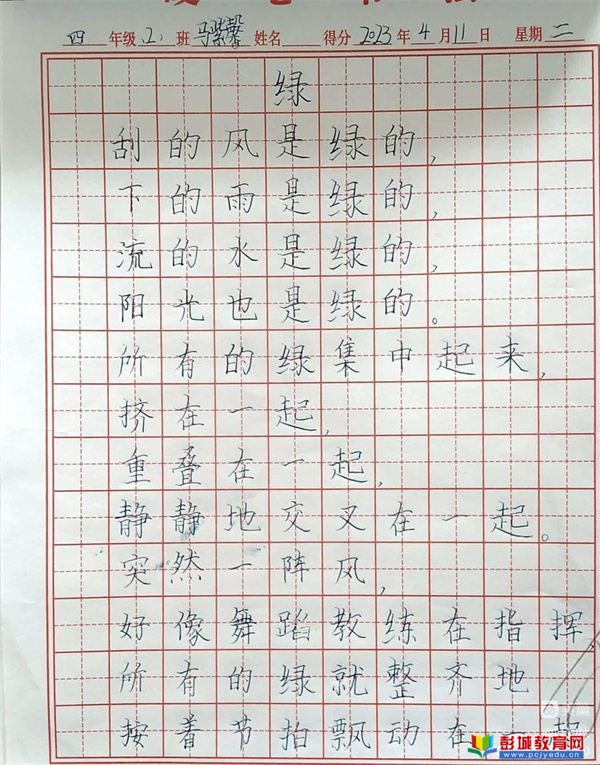 四 年级(2)班 马紫馨 姓名 得分 2023年4月11日 星期二
绿
刮的风是绿的，
下的雨是绿的，
流的水是绿的，
阳光也是绿的。
所有的绿集中起来，
挤在一起，
重叠在一起，
静静地交叉在一起。
突然一阵风，
好像舞蹈教练在指挥，
所有的绿就整齐地
按着节拍飘动在一起
彭城教育网
www.pcjyedu.com